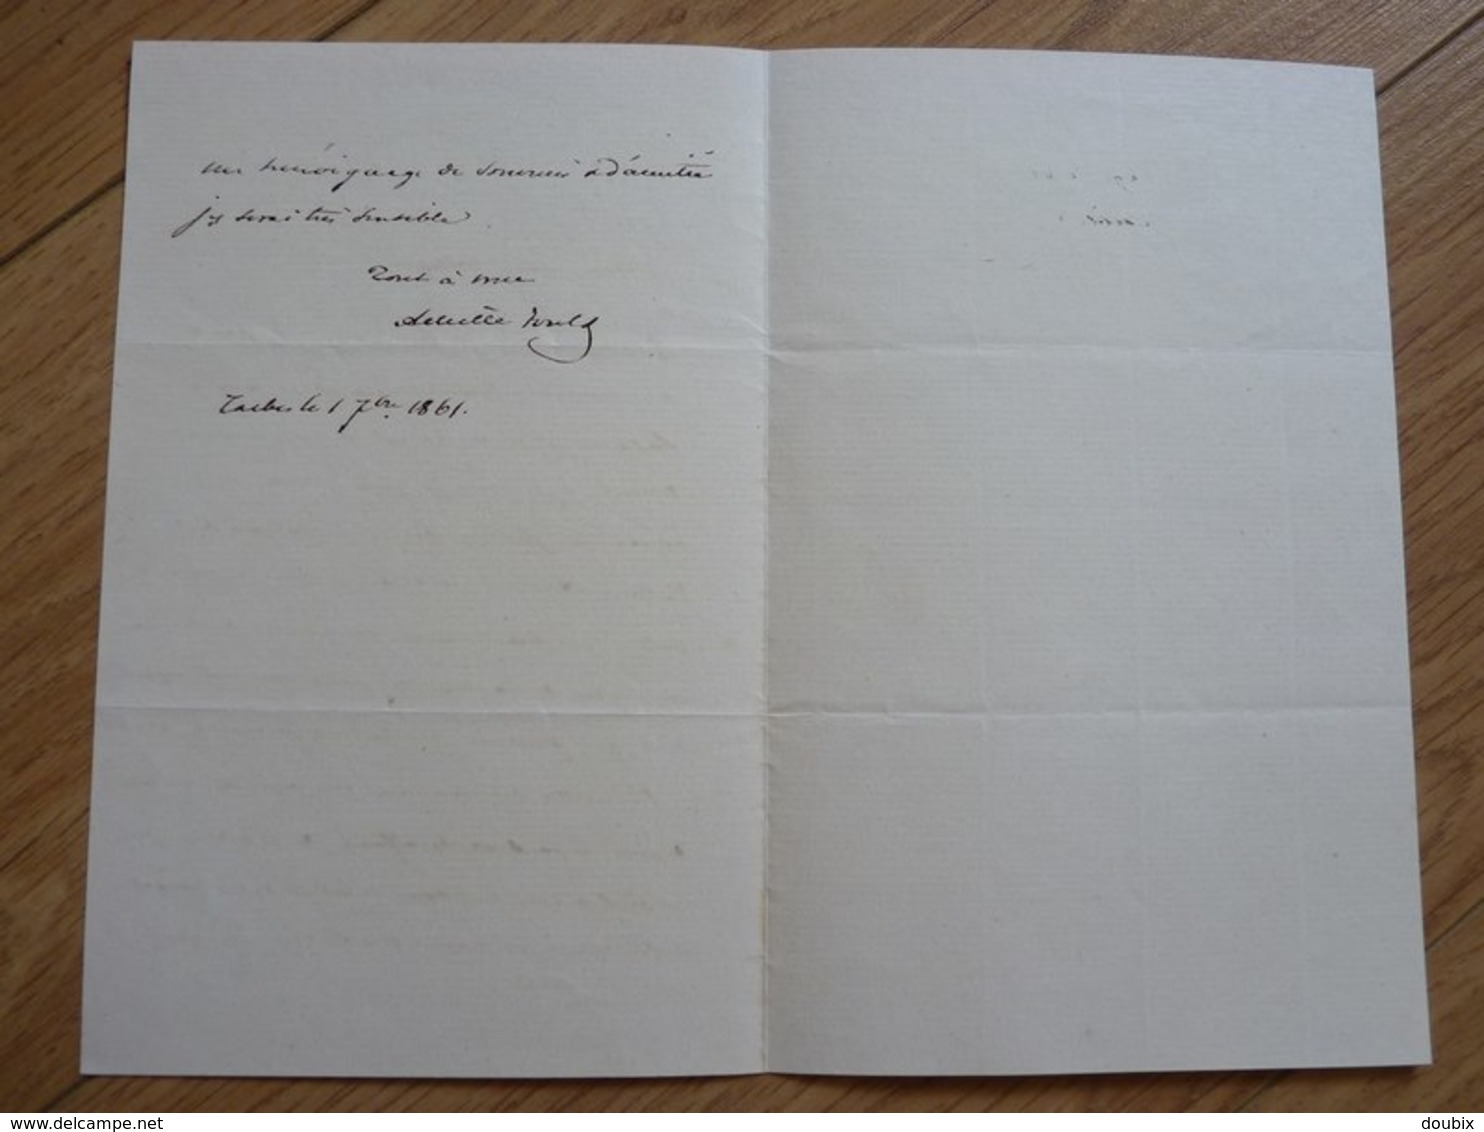 un témoignage de souvenir & d'amitié
j'y serai très sensible.
Tout à vous
Achille Fould
Tarbes le 1 7bre 1861.
www.delcampe.net
doubix